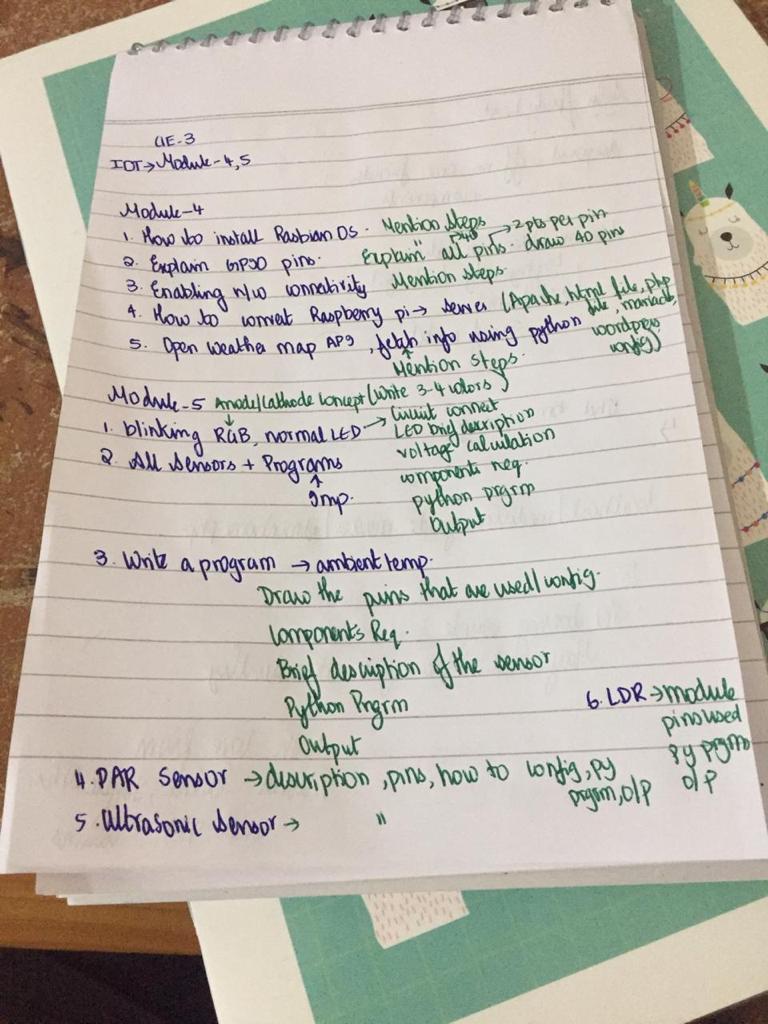 CIE-3
IOT → Module-4,5
Module-4
1. How to install Rasbian OS. Mention Steps
2. Explain GPIO pins. Explain all 40 pins. draw 40 pins → 2 pts per pin
3. Enabling n/w connativity Mention steps
4. How to connect Raspberry pi → server (Apache, html file, php file, mariadb, wordpress config)
5. Open weather map API, fetch info using python
Mention Steps.
Module-5 Anode/Cathode concept (Write 3-4 colors)
1. blinking RGB, normal LED → Circuit connect
LED brief description
2. All Sensors + Programs
Imp.
voltage calculation
components req.
python prgrm
Output
3. Write a program → ambient temp.
Draw the pins that are used/config.
Components Req.
Brief description of the sensor
Python Prgrm
Output
4. PAR Sensor → description, pins, how to config, py prgrm, O/P
5. Ultrasonic Sensor → "
6. LDR → module
pins used
py prgrm
O/P